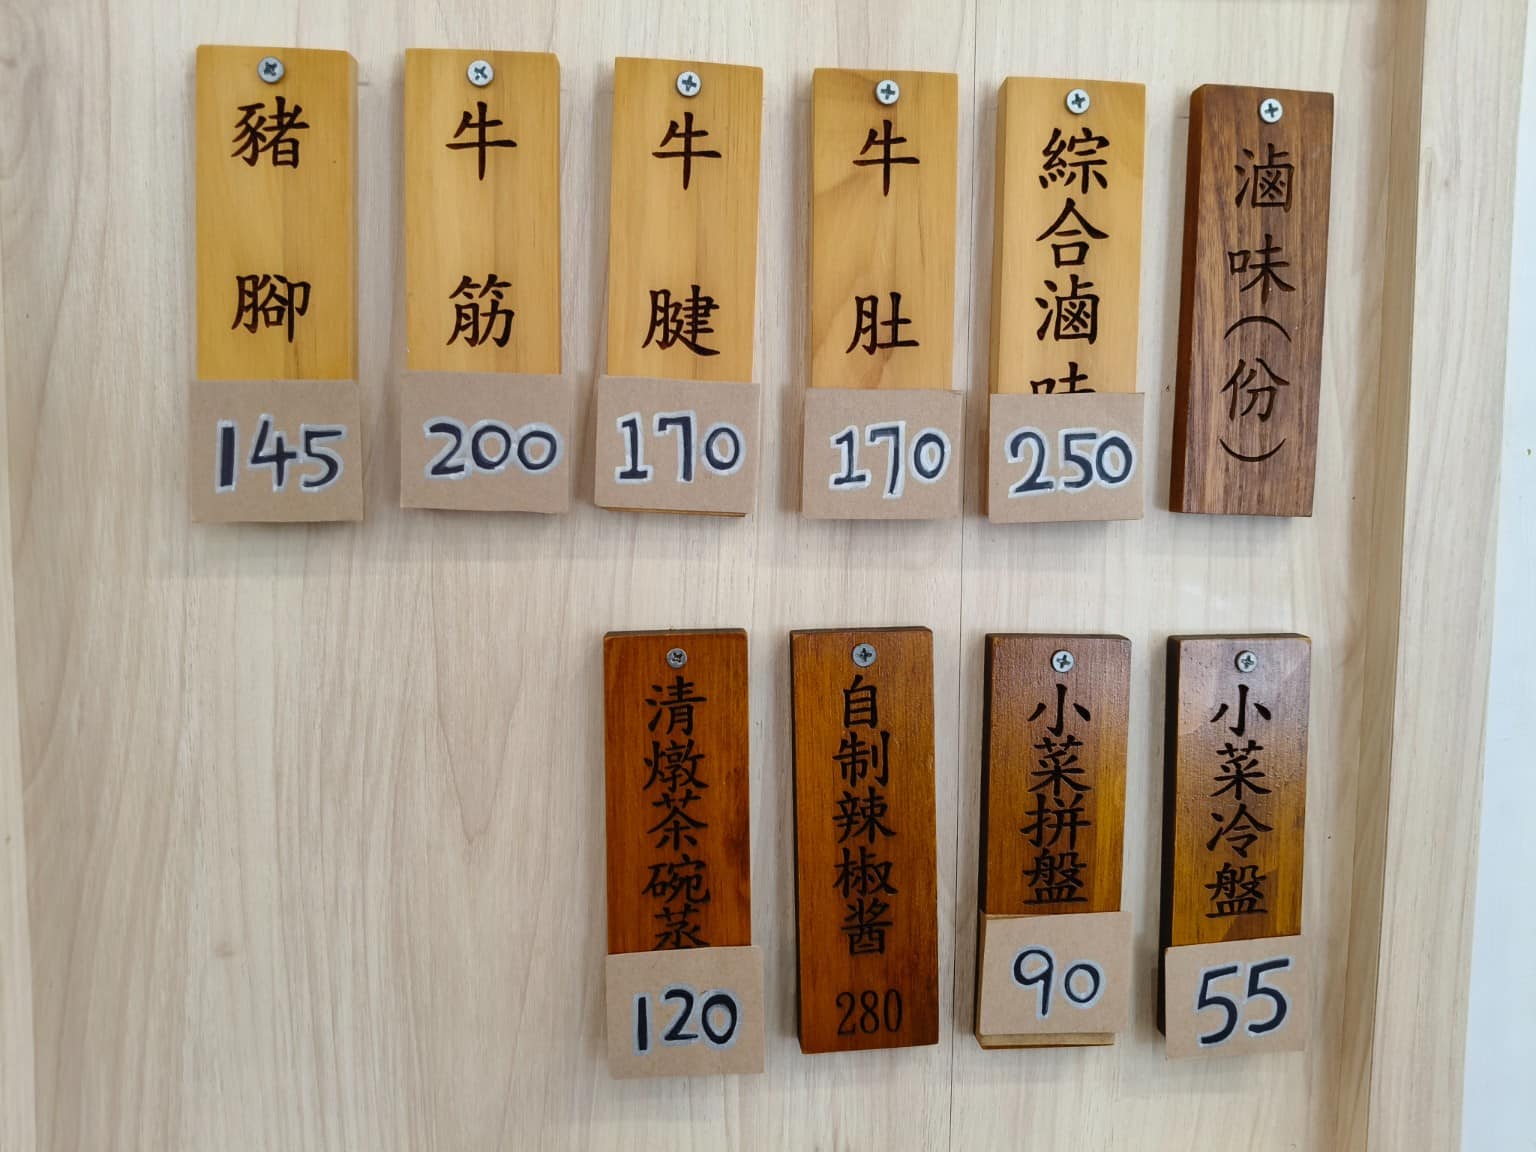 滷味(份)
綜合滷味
250
牛肚
170
牛腱
170
牛筋
200
豬腳
145
小菜冷盤
55
小菜拼盤
90
自制辣椒醬
280
清燉茶碗蒸
120